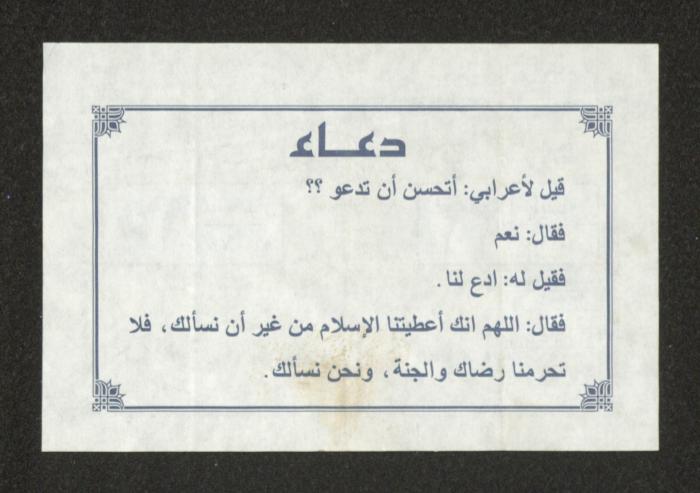 دعاء
قيل لأعرابي: أتحسن أن تدعو ؟؟
فقال: نعم
فقيل له: ادع لنا.
فقال: اللهم انك أعطيتنا الإسلام من غير أن نسألك، فلا
تحرمنا رضاك والجنة، ونحن نسألك.